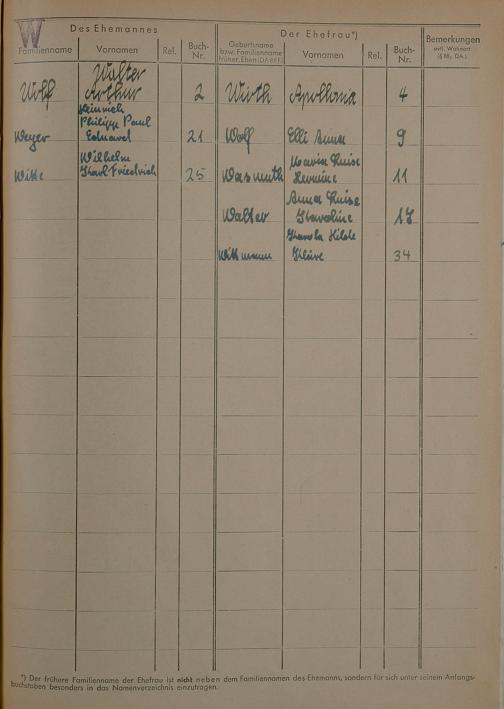 W
Des Ehemannes
Der Ehefrau*)
Familienname
Vornamen
Rel.
Buch-
Nr.
Geburtsname
bzw. Familienname
früher. Ehen (DA § 61)
Vornamen
Rel.
Buch-
Nr.
Bemerkungen
evtl. Wohnort
Walter
Wolf Arthur 2 Wirth Apollonia 4
Heinrich
Philipp Paul
Weyer Eduard 21 Wolf Elli Anna 9
Wilhelm Maria Luise
Witte Karl Friedrich 25 Wasmuth Hermine 11
Anna Luise
Walter Karoline 17
Karola Hilde
Wittmann 34
*) Der frühere Familienname der Ehefrau ist nicht neben dem Familiennamen des Ehemanns, sondern für sich unter seinem Anfangs-
buchstaben besonders in das Namenverzeichnis einzutragen.